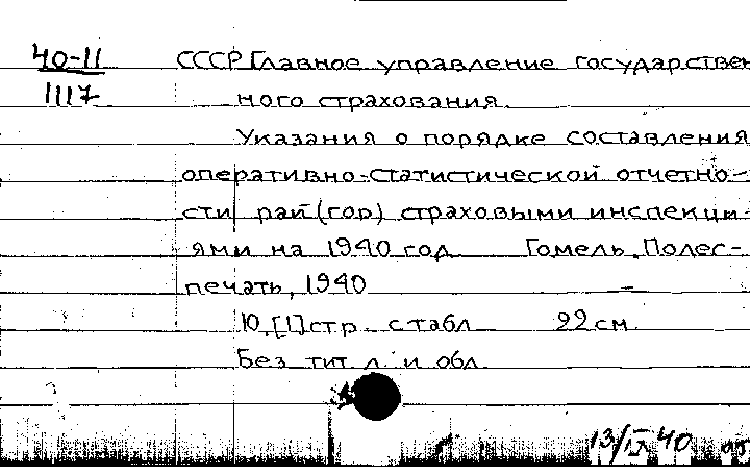 40-11
1117
СССР Главное управление государствен
ного страхования.
Указания о порядке составления
оперативно-статистической отчетно-
сти рай (гор) страховыми инспекци-
ями на 1940 год Гомель, Полес-
печать, 1940
10, [1] стр. с табл 22 см.
Без тит л. и обл.
13/IX 40